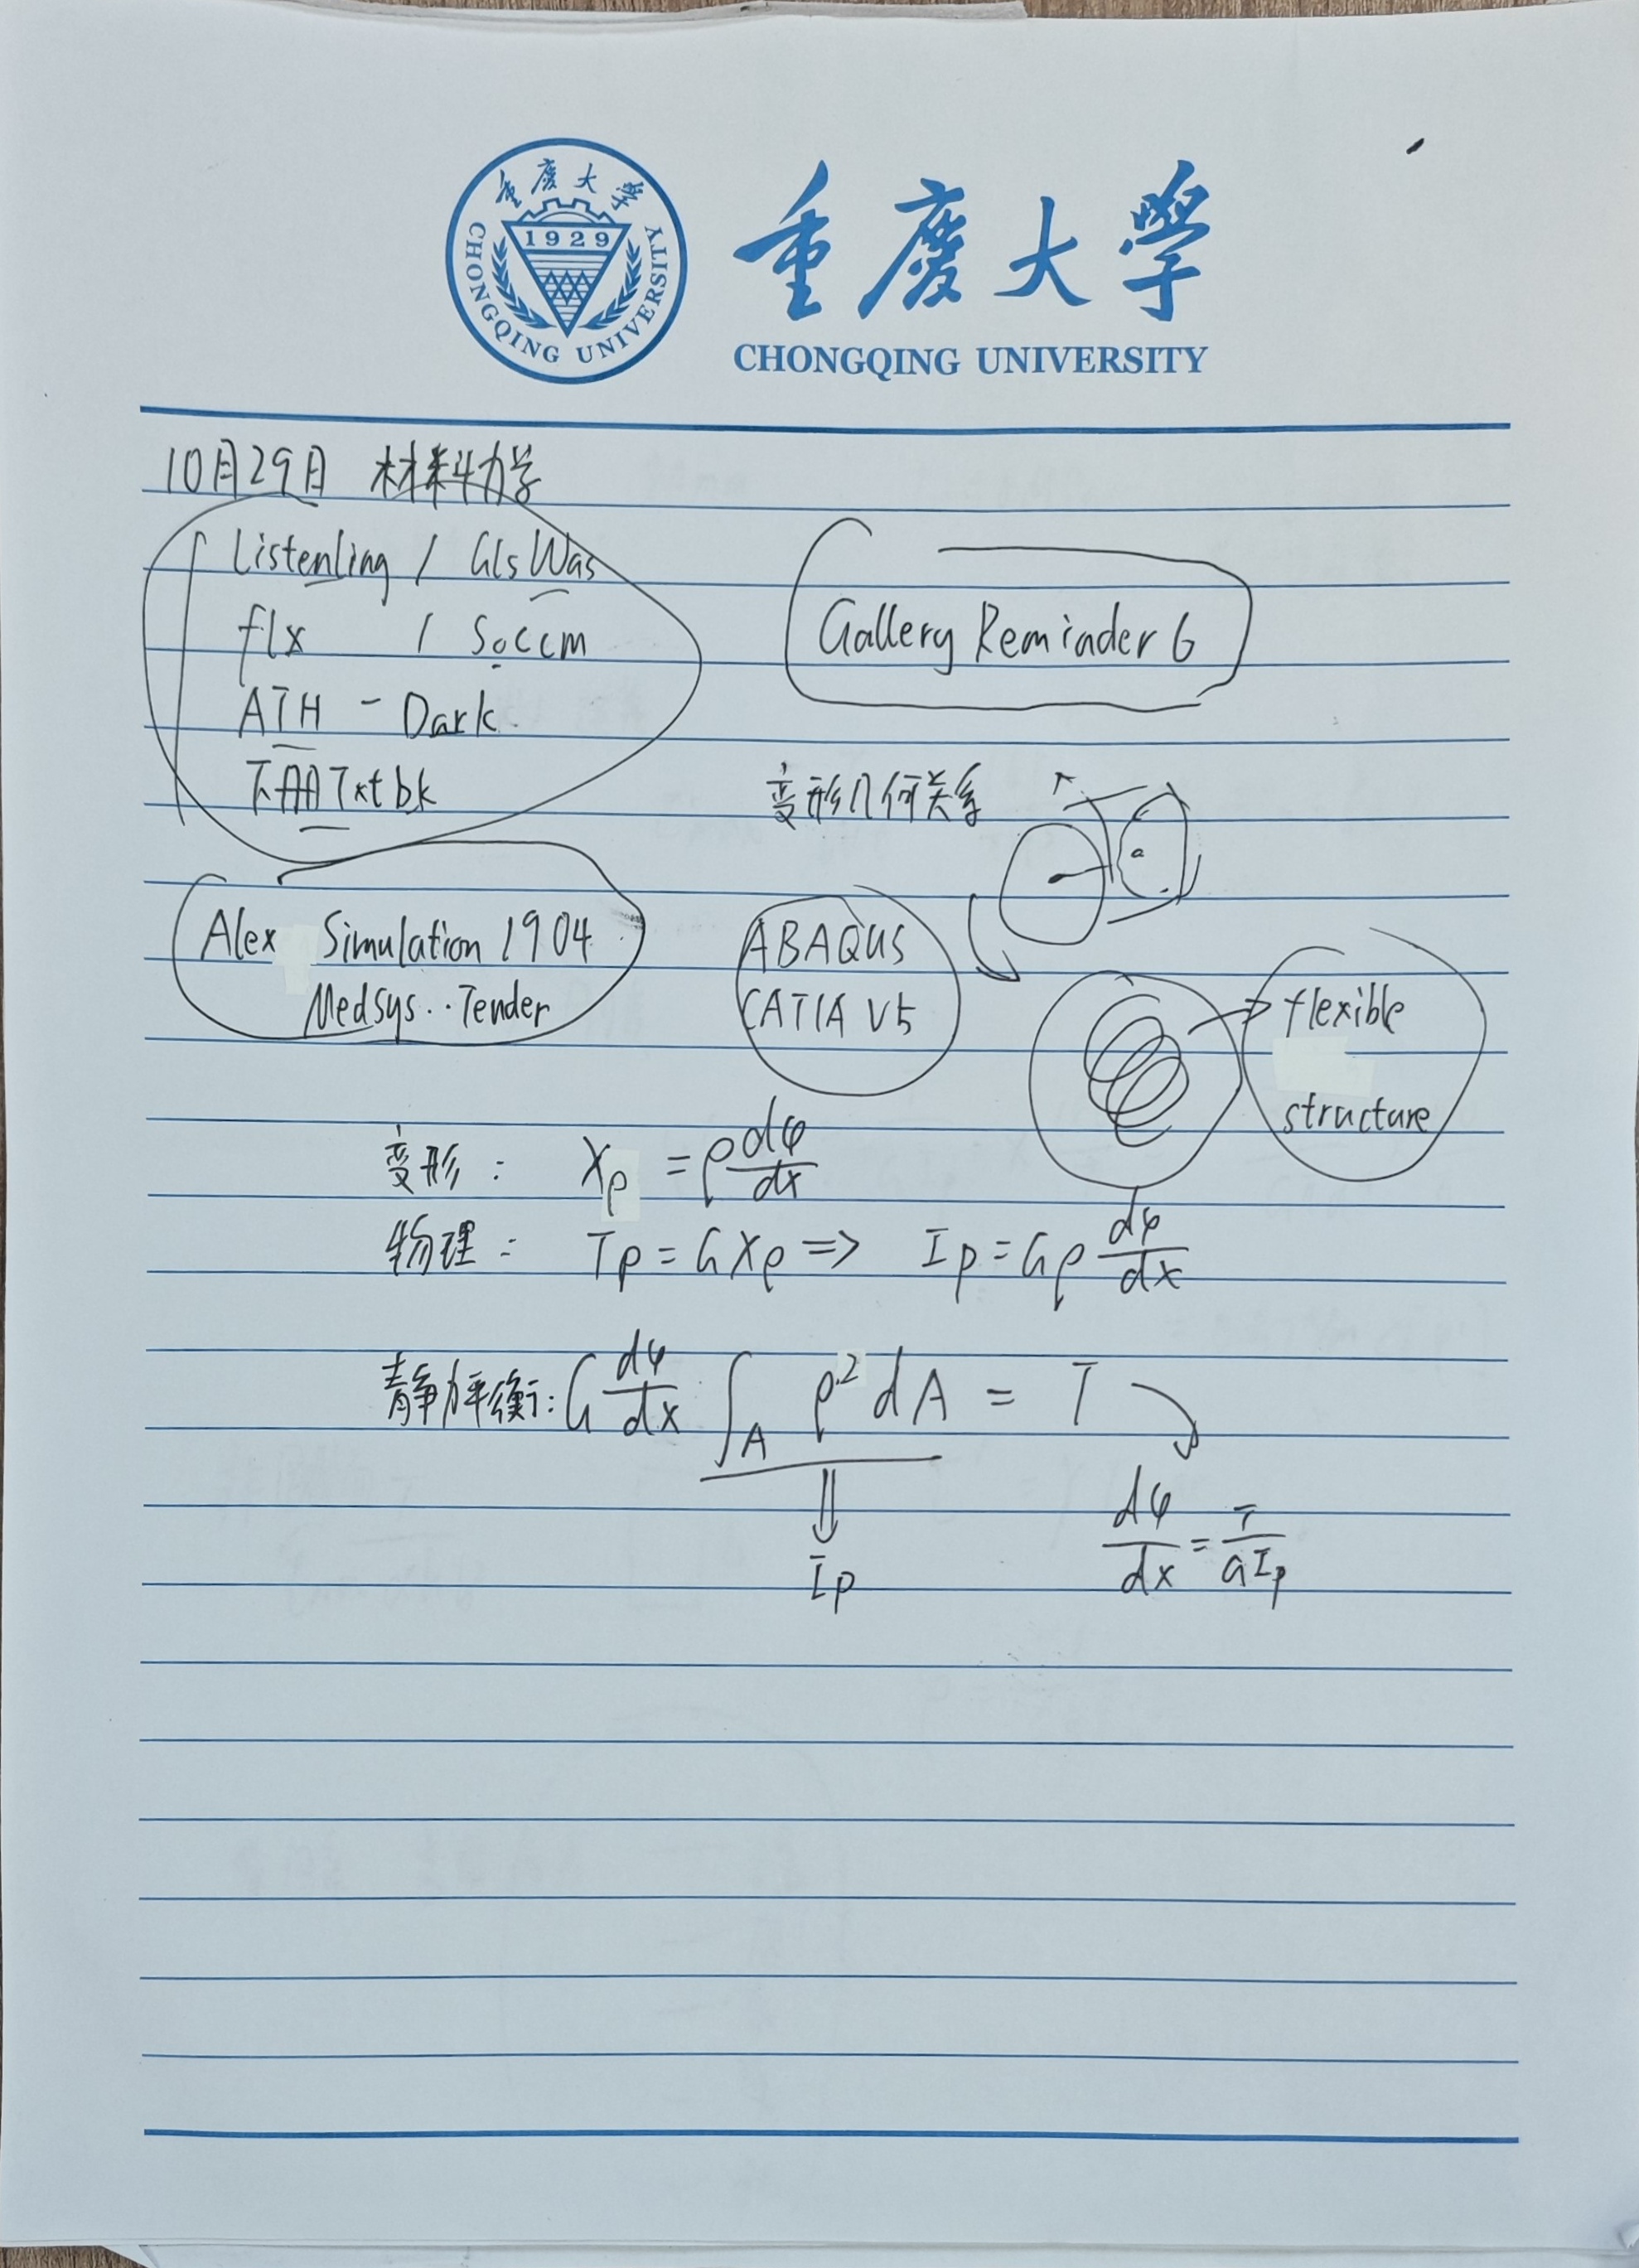 重庆大学
1929
CHONGQING UNIVERSITY
重庆大学
CHONGQING UNIVERSITY
10月29日 材料力学
Listenling / GlsWas
flx / Soccm
ATH - Dark
下册Txtbk
Gallery Reminder 6
变形几何关系
Alex Simulation 1904
MedSys.. Tender
ABAQUS
CATIA V5
flexible
structure
变形: Xρ = ρ dφ/dx
物理: Tρ = GXρ => Iρ = Gρ dφ/dx
静力平衡: G dφ/dx ∫A ρ² dA = T
Ip
dφ/dx = T/GIp